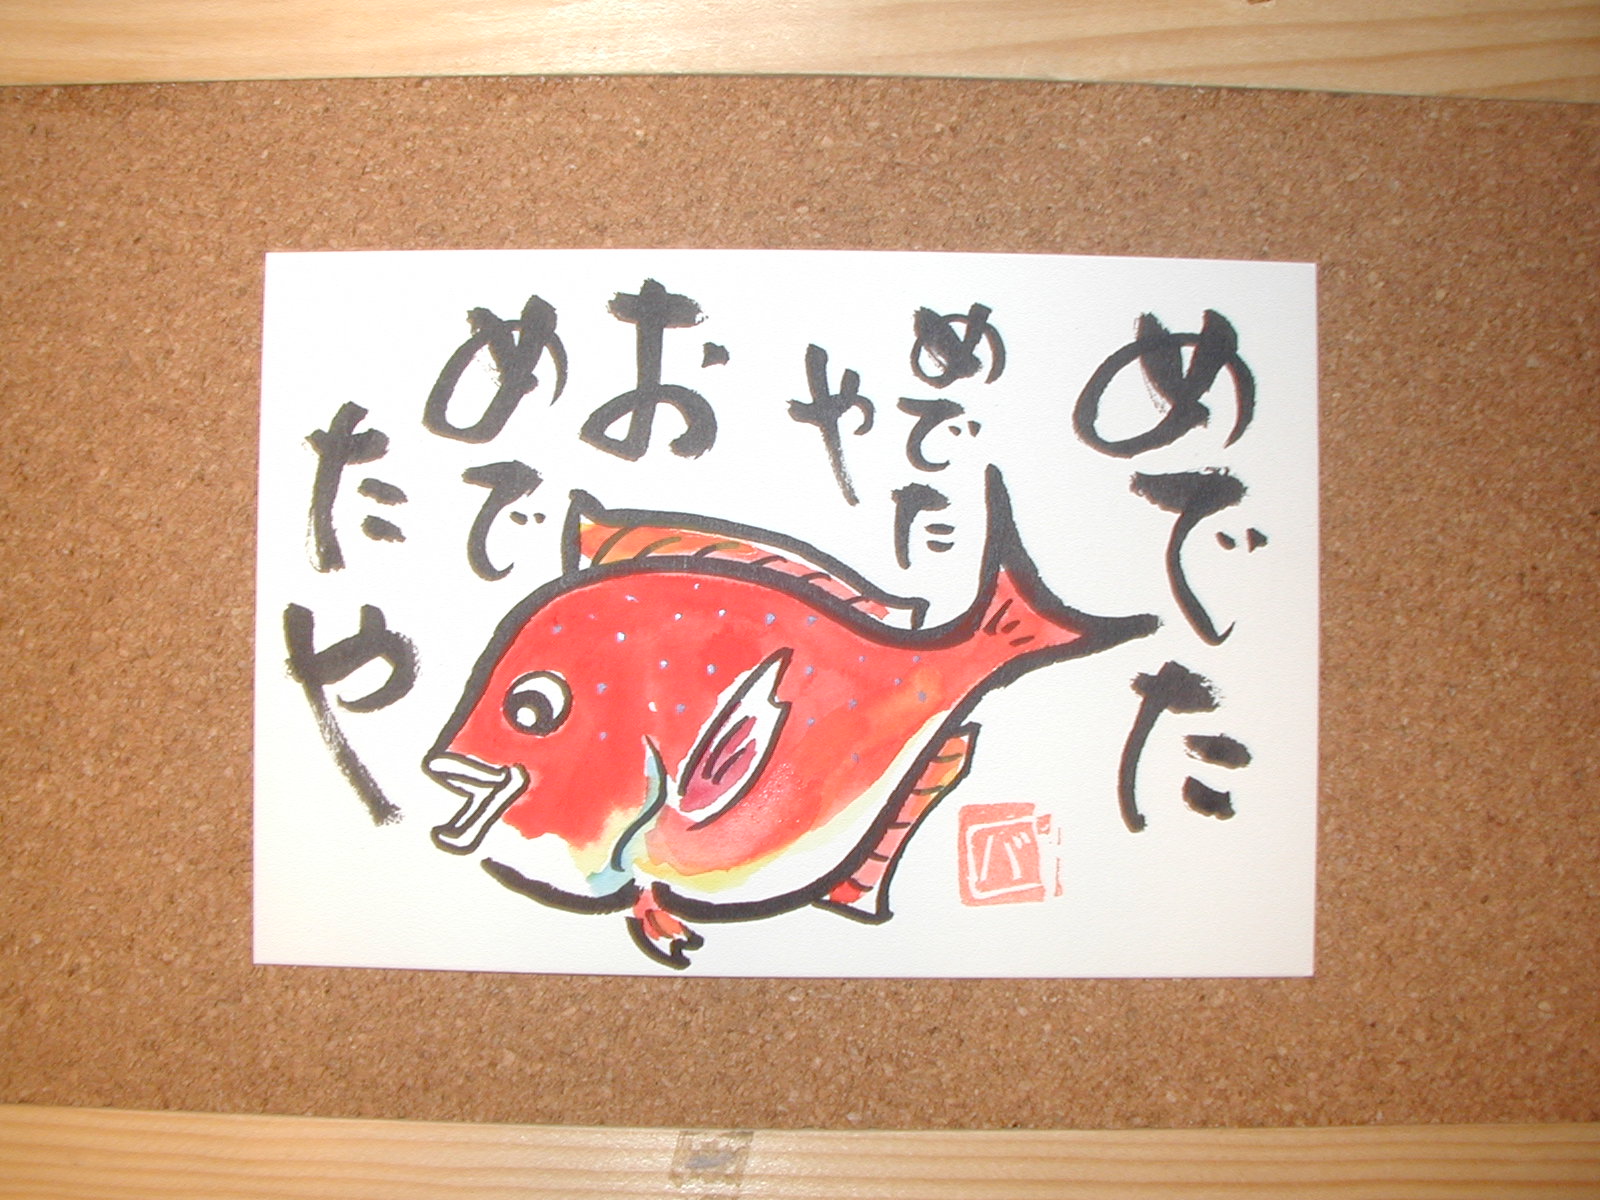 めでた
めでた
や
お
めで
た
や
バ